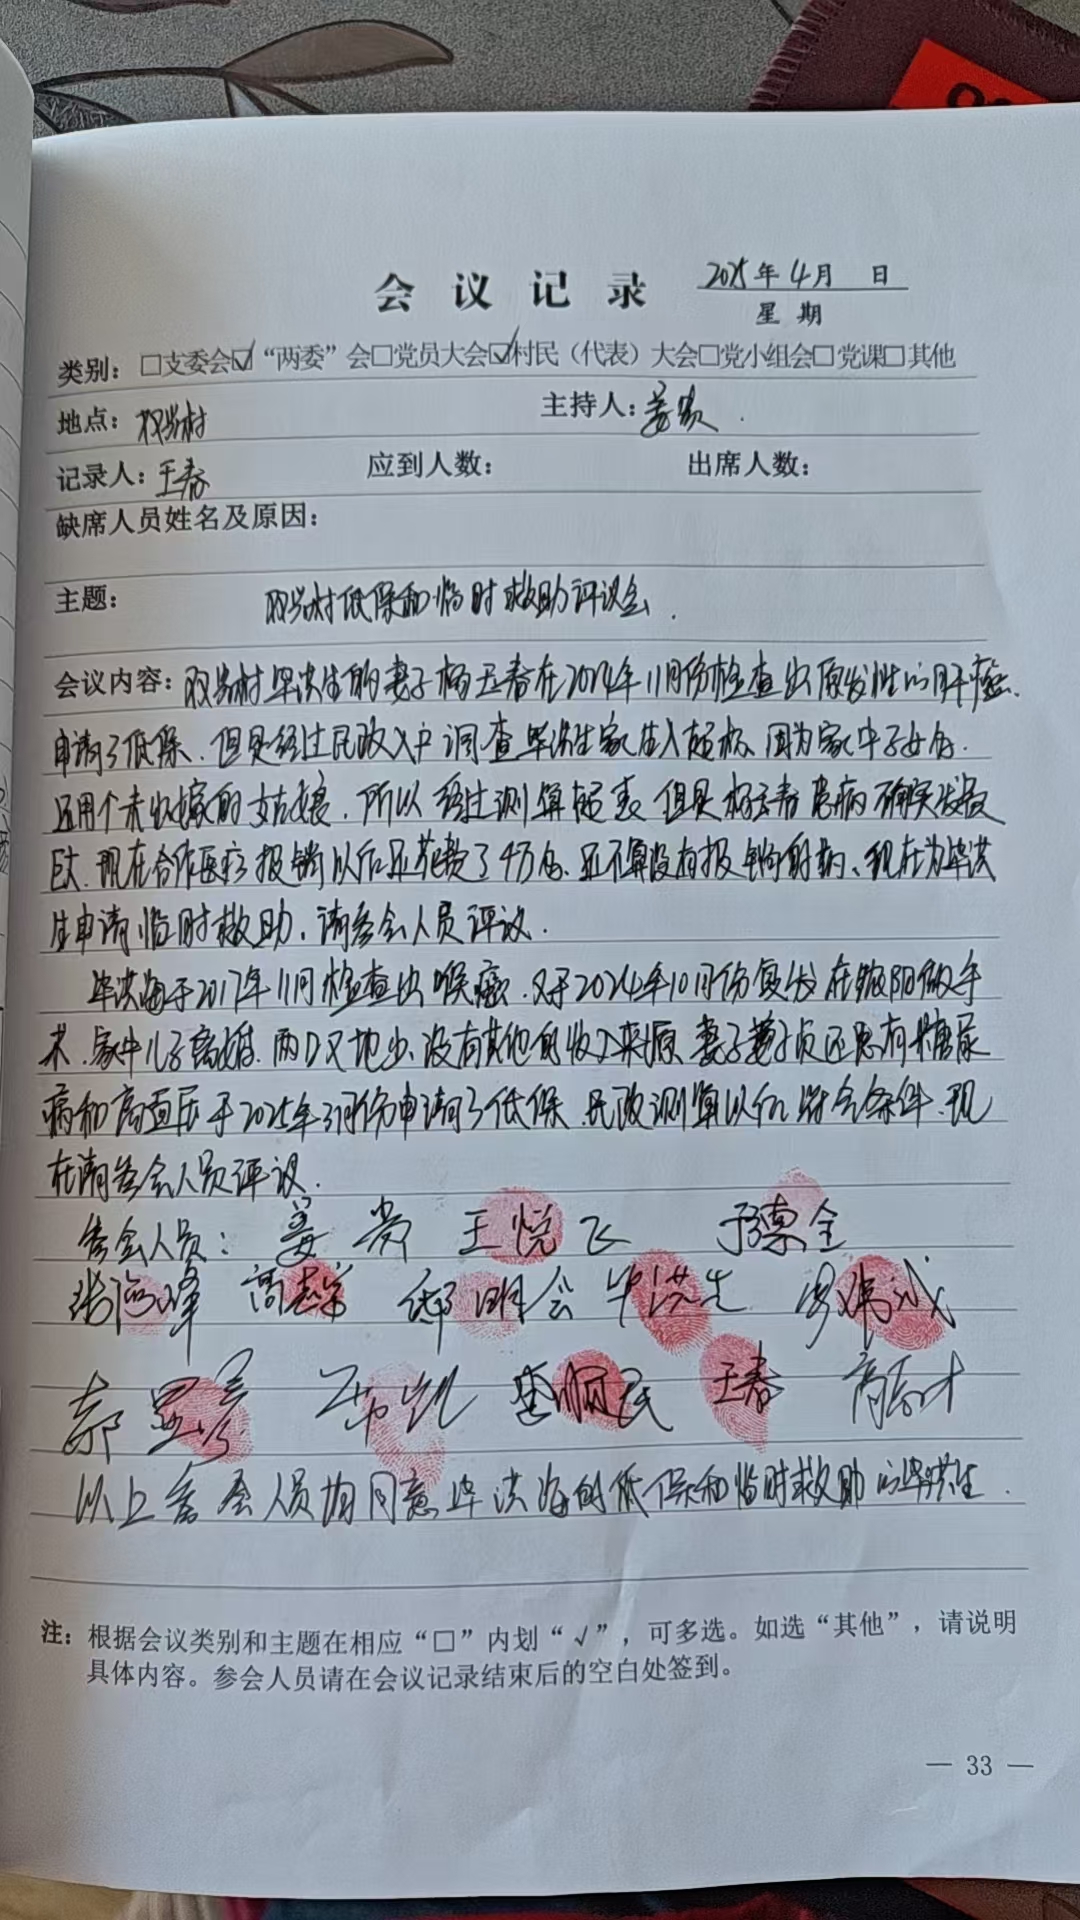 会议记录 2025年4月 日
星期
类别：□支委会☑“两委”会□党员大会☑村民（代表）大会□党小组会□党课□其他
地点：双岗村 主持人：姜贵
记录人：王春 应到人数： 出席人数：
缺席人员姓名及原因：
主题： 双岗村低保和临时救助评议会.
会议内容：双岗村毕洪生的妻子杨玉春在2024年11月份检查出原发性的肝癌.
申请了低保.但是经过民政入户调查毕洪生家庭收入超标.因为家中子女多.
还用个未出嫁的姑娘.所以经过测算超表但是杨玉春患病确实花费
巨大.现在合作医疗报销以后还花费了4万多.还不算没有报销的药、现在为毕洪
生申请临时救助.请参会人员评议.
毕洪海于2017年11月检查出喉癌.又于2024年10月份复发在沈阳做手
术.家中儿子离婚.两口人地少.没有其他的收入来源妻子 贞还患有糖尿
病和高血压于2025年3月份申请了低保.民政测算以后符合条件.现
在请参会人员评议.
参会人员：姜贵 王悦飞 于德全
张海峰 高志学 邵明会 毕洪生 罗伟斌
郭 彦 李丽民 王春 商 才
以上参会人员均同意毕洪海的低保和临时救助的毕洪生.
注：根据会议类别和主题在相应“□”内划“√”，可多选。如选“其他”，请说明
具体内容。参会人员请在会议记录结束后的空白处签到。
— 33 —